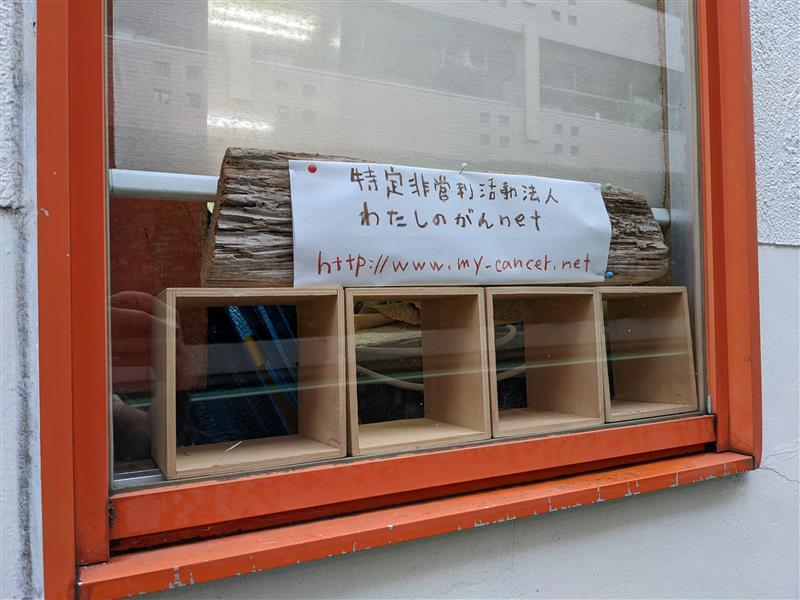 特定非営利活動法人
わたしのがんnet
http://www.my-cancer.net